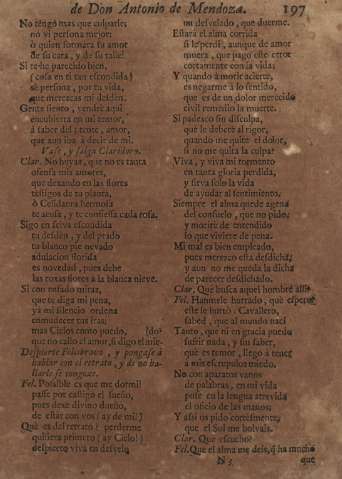 de Don Antonio de Mendoza. 197
No tengo mas que culparle;
no vì persona mejor:
ò quien gozàra tu amor
de su cara, y de su talle!
Si te ha parecido bien,
(cosa en ti tan escondida)
sè persona, por tu vida,
que merezcas mi desdèn.
Gente siento, vendrè aqui
encubierta en mi temor,
à saber del amor,
que aun iba à decir de mi.
Vase, y salga Claridoro.
Clar. No huyas, que no es tanta
ofensa mis amores,
que dexando en las flores
testigos de tu planta,
ò Celidaura hermosa
te acusa, y te confiessa cada rosa.
Sigo en selva escondida
tu desdèn, y del prado
tu blanco pie nevado
adulacion florida
es novedad, pues debe
las rosas flores à la blanca nieve.
Si con rumor mirar,
que te diga mi pena,
ya mi silencio ordena
enmudecer tus iras;
mas Cielos como puedo, [do?
que no callo el amor, si digo el mie-
Despierte Felisbravo, y pongase à
hablar con el retrato, y de no ha-
llarle se congoxe.
Fel. Possible es que me dormì!
passe por castigo el sueño,
pues dexè divino dueño,
de estar con vos! ay de mi!
Què es del retrato? perderme
quisiera primero (ay Cielo!)
despierto viva en desvelo
un desvelado, que duerme.
Estarà el alma corrida
si le perdì, aunque de amor
muera, que pago este error
cortamente con la vida;
Y quando à morir acierte,
es negarme à lo sentido,
que es de un dolor merecido
civil remedio la muerte.
Si padesco sin disculpa,
què le deberè al rigor,
quando me quite el dolor,
si no me quita la culpa?
Viva, y viva mi tormento
en tanta gloria perdida,
y sirva solo la vida
de ayudar al sentimiento.
Siempre el alma quede agena
del consuelo, que no pido,
y morirè de entendido
lo que viviere de pena.
Mi mal es bien empleado,
pues merezco esta desdicha,
y aun no me queda la dicha
de parecer desdichado.
Clar. Què busca aquel hombre alli?
Fel. Hanmele hurtado, què espero?
este le hurtò: Cavallero,
sabed, que al mundo nacì
Tanto, que ni en gracia puedo
sufrir nada, y sin saber,
què es temor, llego à tener
à mis escrupulos miedo.
No con aparatos vanos
de palabras, en mi vida
puse en la lengua atrevida
el oficio de las manos;
Y assi os pido cortesmente,
que el Sol me bolvais.
Clar. Què escucho?
Fel. Que el alma me deis, q̃ ha mucho
N 3 que